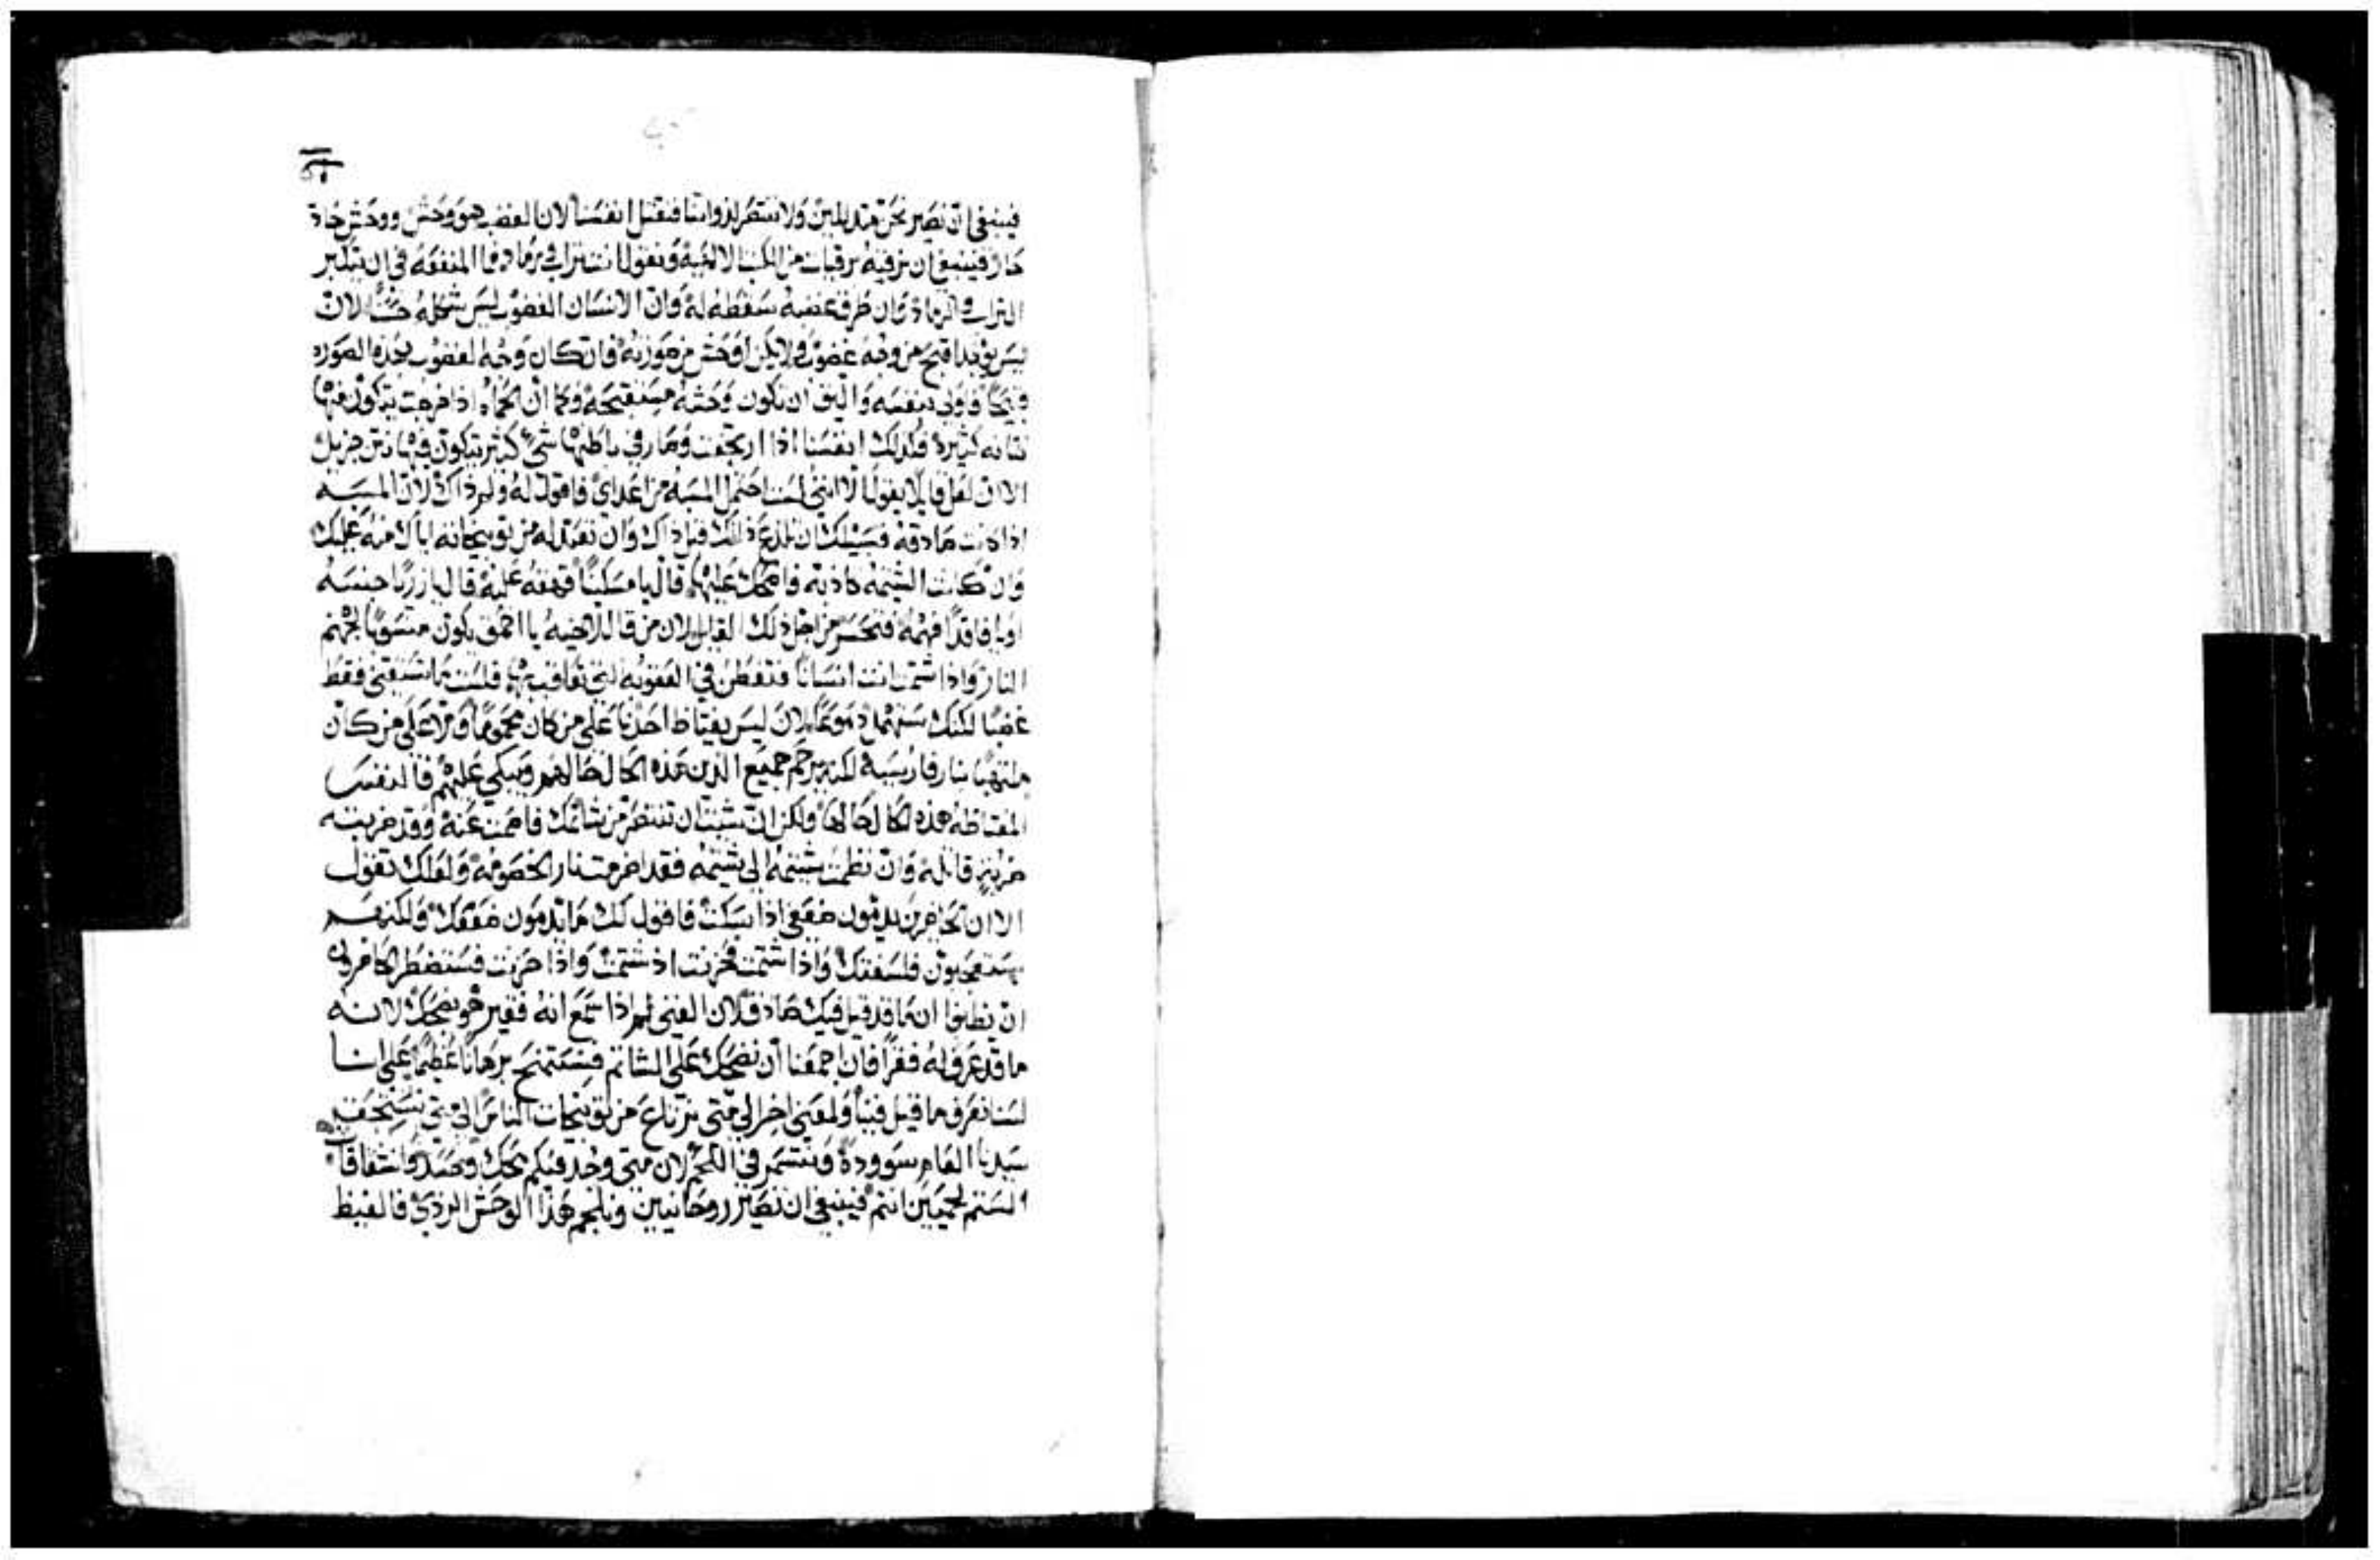 فينبغي ان نصير نحن متذللين ولا ننتصر لذواتنا فنقتل انفسنا لان الغضب هو وحش ووحش حاد
حار فينبغي ان نرقيه برقيات من الكتب الالهية ونقول انت تراب ورماد وما المنفعه في ان يتكبر
التراب والرماد وان طرف غضبه سقطه له وان الانسان الغضوب ليس شكله حسنًا لان
ليس يوجد اقبح من وجه غضوب ولا يكن اوحش من صورته فان كان وجه الغضوب بهذه الصوره
قبيحًا فاولى بنفسه واليق ان تكون وحشه مستقبحه وكما ان الحماه اذا خرجت يتكون منها
نتانه كثيره فكذلك انفسنا اذا ارتجفت وصار في باطنها شي كثير يتكون فيها نتن جزيل
الا ان لعل قايلًا يقول لا انني لست احتمل المسبه من اعداي فاقول له ولم ذاك لان المسبه
اذا كانت صادقه فسبيلك ان تلذع ذاتك قبل ذاك وان تعتد له من توبيخاته اياك منه عليك
وان كانت الشتيمه كاذبه فاضحك عليها قال يا مسكينًا قهقه عليه قال يا زريًا جنسه
او يا فاقدًا فهمه فتحسر من اجل ذلك القايل لان من قال لاخيه يا احمق يكون مستوجبًا لجهنم
النار واذا شتمت انت انسانًا فتفطن في العقوبه التي تعاقب بها فلست ما تستقني فقط
غضبًا لكنك ستنهمل دموعًا لان ليس يغتاظ احدنا على من كان محمومًا ولا على من كان
ملتهبًا بنار فارسيه لكنه يرحم جميع الذين هذه الحال حالهم ويبكي عليهم فالنفس
المغتاظه هذه الحال حالها ولكن ان شيت ان تنتصر من شاتمك فاصمت عنه وقد ضربته
ضربه قاتله وان نظمت شتيمه الى شتيمه فقد اضرمت نار الخصومه ولعلك تقول
الا ان الحاضرين يذمون ضعفي اذا سكت فاقول لك ما يذمون ضعفك ولكنهم
يستعجبون فلسفتك واذا شتمت فحزنت اذ شتمت واذا حزنت فستضطر الحاضرين
ان يظنوا ان ما قد قيل فيك صادق لان الغني لم اذا سمع انه فقير هو يضحك لانه
ما قد عرف له فقرًا فان اجمعنا ان نضحك على الشاتم فسنمنح برهانًا عظيمًا على اننا
لسنا نعرف ما قيل فينا ولمعنى اخر الى متى نرتاع من توبيخات الناس الى متى نستخف
سيدنا العام سووده ونتسمر في اللحم لان متى وجد فيكم محك وحسد وانشقاقات
السنم لحميين انتم فينبغي ان نصير روحانيين ونلجم هذا الوحش الردي فالغيظ